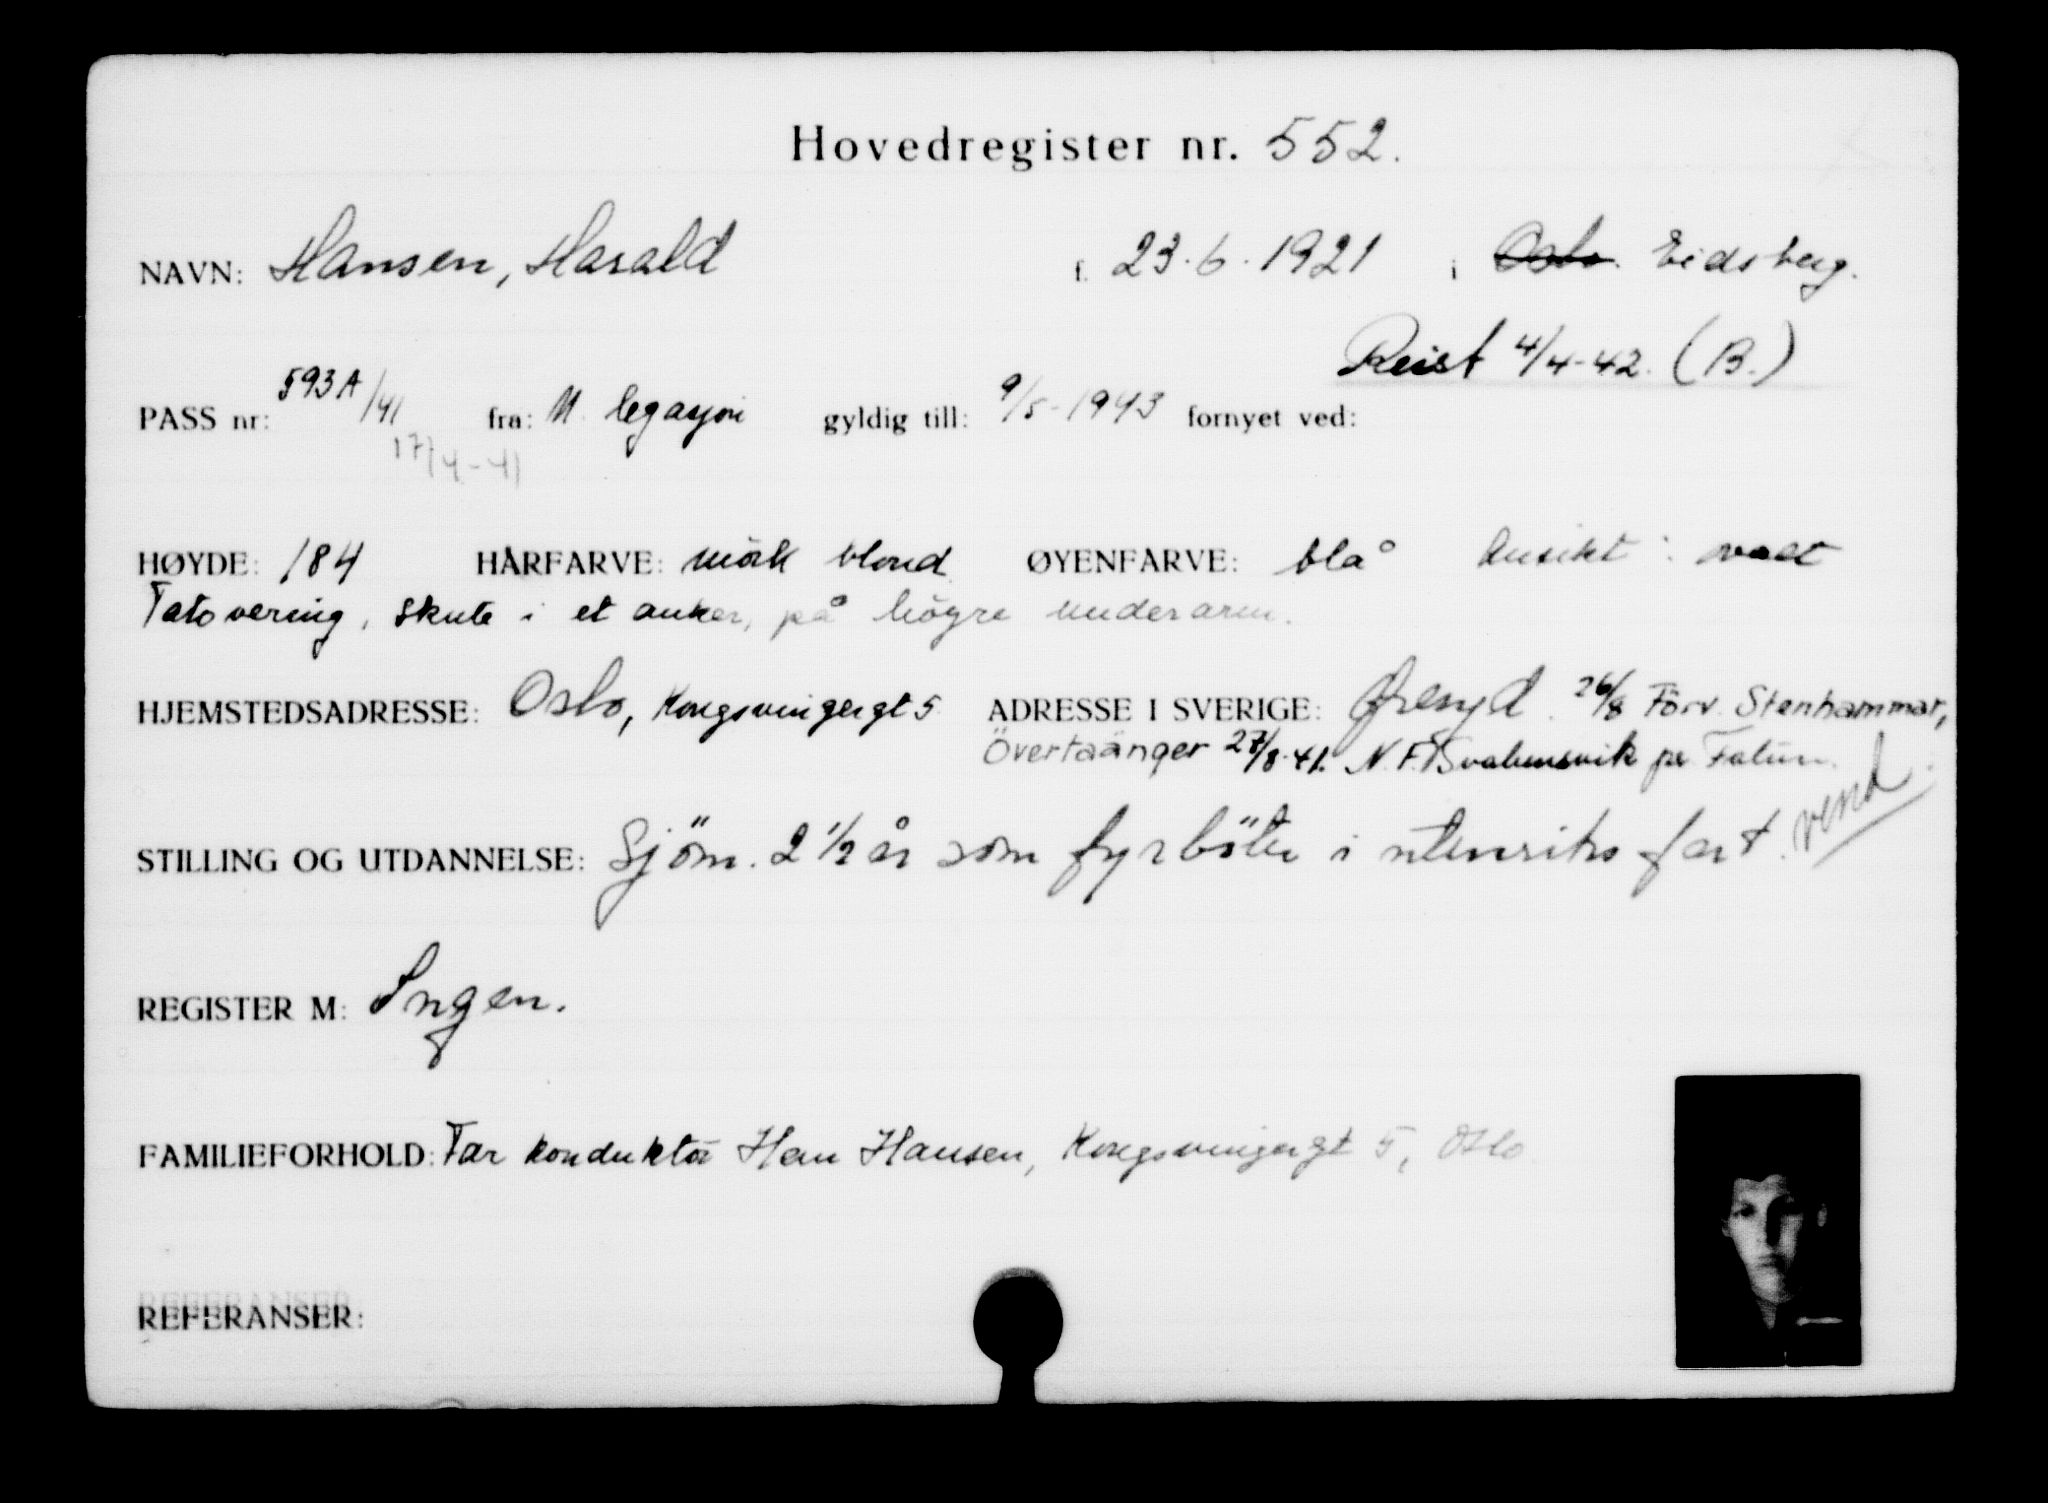 Hovedregister nr. 552.
NAVN: Hansen, Harald f. 23.6.1921 i Oslo. Eidsberg.
Reist 4/4-42. (B.)
PASS nr: 593A/41 fra: N. legasjon gyldig till: 9/5-1943 fornyet ved:
17/4-41
HØYDE: 184 HÅRFARVE: mörk blond ØYENFARVE: blå Ansikt: ovalt
Tatovering, skute i et anker, på högre underarm.
HJEMSTEDSADRESSE: Oslo, Kongsvingergt 5 ADRESSE I SVERIGE: Öreryd. 26/8 Förv. Stenhammar,
Övertaänger 27/8-41. N.F. per Falun.
vend
STILLING OG UTDANNELSE: Sjöm. 2 1/2 år som fyrböter i utenriks fart.
REGISTER M: Ingen.
FAMILIEFORHOLD: Far konduktör Hans Hansen, Kongsvingergt 5, Oslo
REFERANSER: